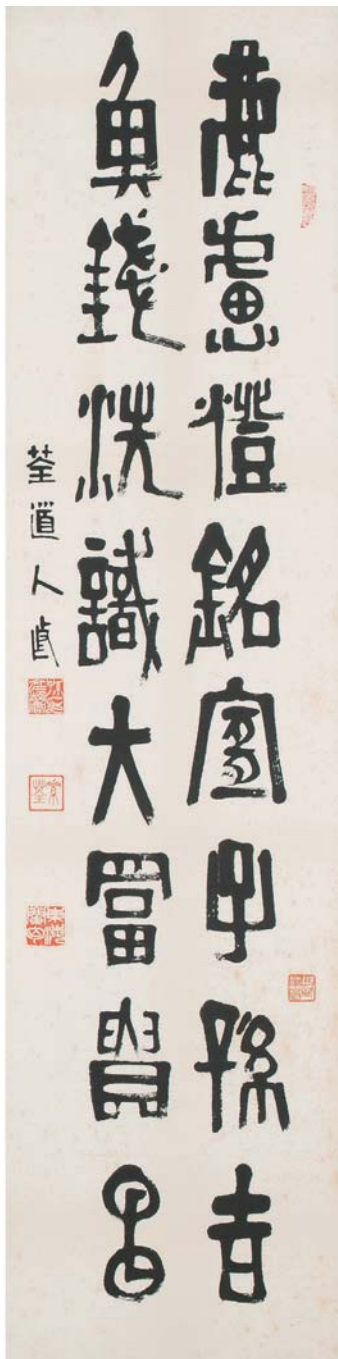 鹿盧燈銘宜子孫吉
魚錢洗識大富貴昌
荃道人